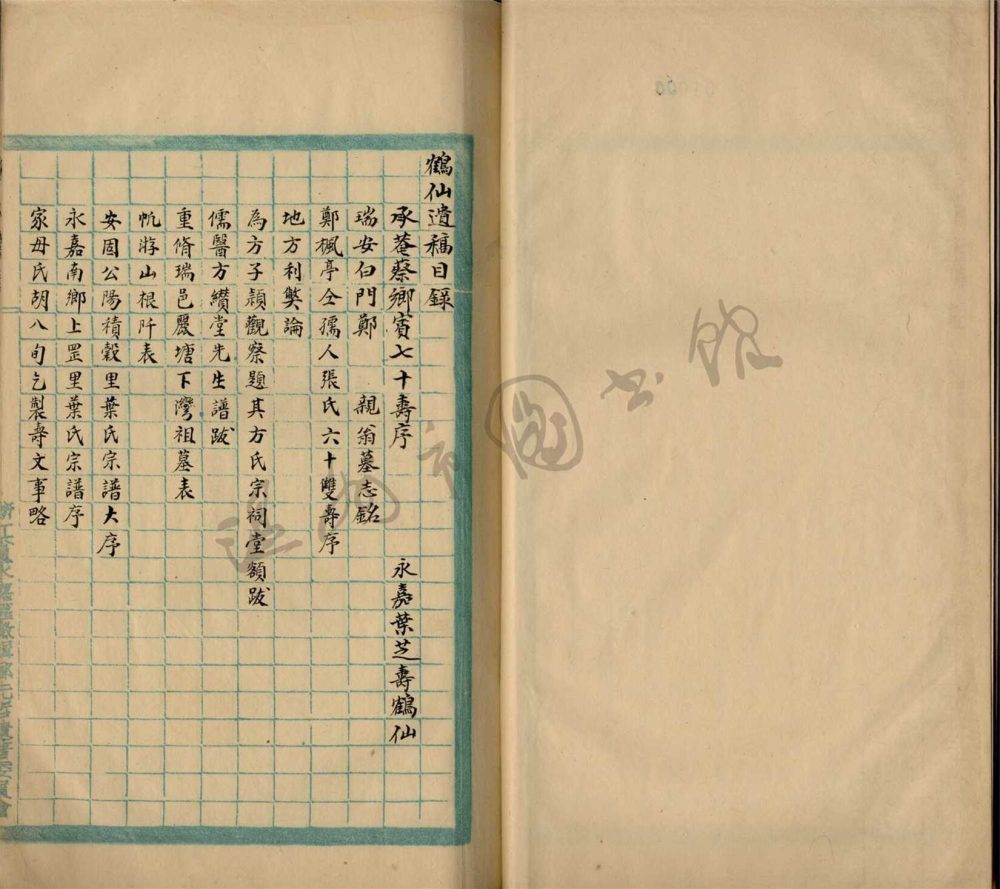 鶴仙遺稿目錄
承菴蔡鄉賓七十壽序 永嘉葉芝壽鶴仙
瑞安白門鄭 親翁墓志銘
鄭楓亭仝孺人張氏六十雙壽序
地方利獘論
為方子穎觀察題其方氏宗祠堂額跋
儒醫方纘堂先生譜跋
重脩瑞邑麗塘下灣祖墓表
帆游山根阡表
安固公陽積穀里葉氏宗譜大序
永嘉南鄉上罡里葉氏宗譜序
家母氏胡八旬乞製壽文事略
圖书館